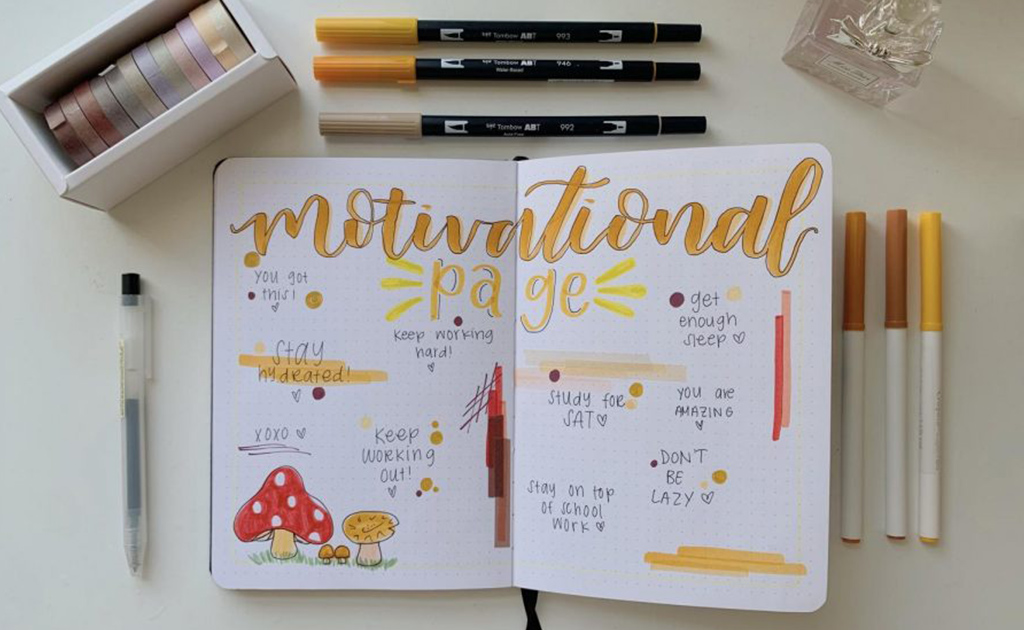 Tombow ABT 993
Tombow ABT 946
Water-Based
Tombow ABT 992
motivational
page
you got
this!
Keep working
hard!
stay
hydrated!
xoxo
Keep
working
out!
get
enough
sleep
study for
SAT
you are
AMAZING
DON'T
BE
LAZY
stay on top
of school
work